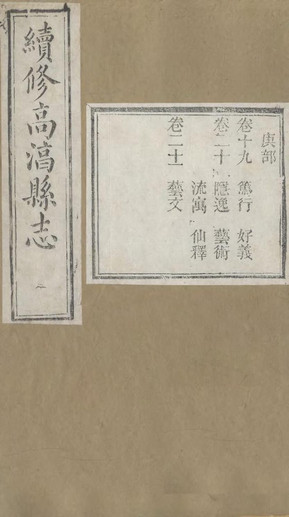 續修高淯縣志
一
庚部
卷十九 篤行 好義
卷二十 隱逸 藝術
流寓 仙釋
卷二十一 藝文